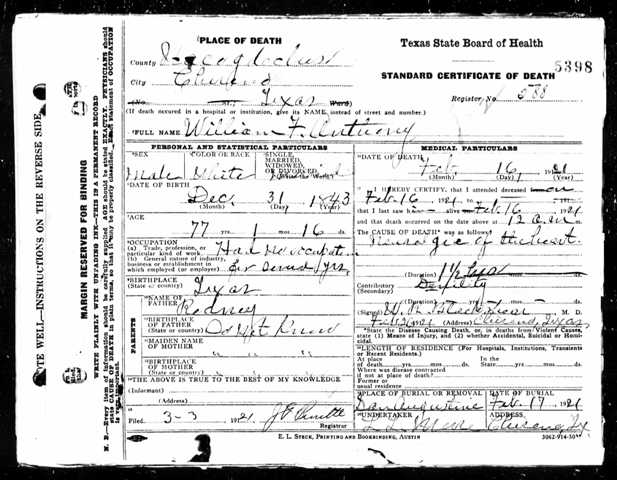 PLACE OF DEATH
Texas State Board of Health
County Nacogdoches
City Chireno
5398
STANDARD CERTIFICATE OF DEATH
Register No. 588
(No. St. Ward) Texas
(If death occured in a hospital or institution, give its NAME instead of street and number.)
FULL NAME William F. Anthony
PERSONAL AND STATISTICAL PARTICULARS
SEX
Male
COLOR OR RACE
White
SINGLE, MARRIED, WIDOWED, OR DIVORCED
(Write the Word)
DATE OF BIRTH
Dec 31 1843
(Month) (Day) (Year)
AGE
77 yrs. 1 mos. 16 ds.
OCCUPATION
(a) Trade, profession, or particular kind of work
(b) General nature of industry, business or establishment in which employed (or employer)
Had no occupation
for several yrs
BIRTHPLACE
(State or country) Texas
PARENTS
NAME OF FATHER Rodney
BIRTHPLACE OF FATHER
(State or country) Do Not Know
MAIDEN NAME OF MOTHER " " "
BIRTHPLACE OF MOTHER
(State or country) " " "
THE ABOVE IS TRUE TO THE BEST OF MY KNOWLEDGE
(Informant)
(Address)
Filed 3-3 1921
Registrar
MEDICAL PARTICULARS
DATE OF DEATH
Feb 16 1921
(Month) (Day) (Year)
I HEREBY CERTIFY, that I attended deceased on
Feb 16 1921 to 191
that I last saw h alive Feb 16 1921
and that death occured on the above at 12 a. m
The CAUSE OF DEATH was as follows:
Neuralgia of the heart.
(Duration) 1½ yrs mos. ds.
Contributory (Secondary) Debility
(Duration) yrs. mos. ds.
(Signed) M. D.
1921 (Address) Chireno, Texas
State the Disease Causing Death, or, in deaths from Violent Causes, state (1) Means of Injury; and (2) whether Accidental, Suicidal or Homicidal.
LENGTH OF RESIDENCE (For Hospitals, Institutions, Transients or Recent Residents.)
At place of death yrs. mos. ds. In the State yrs. mos. ds.
Where was disease contracted if not at place of death?
Former or usual residence
PLACE OF BURIAL OR REMOVAL
San Augustine
DATE OF BURIAL
Feb. 17 1921
UNDERTAKER
ADDRESS
Chireno, Tx
E. L. STECK, PRINTING AND BOOKBINDING, AUSTIN
3062-914-50
MARGIN RESERVED FOR BINDING
WRITE PLAINLY WITH UNFADING INK—THIS IS A PERMANENT RECORD
WELL—INSTRUCTIONS ON THE REVERSE SIDE